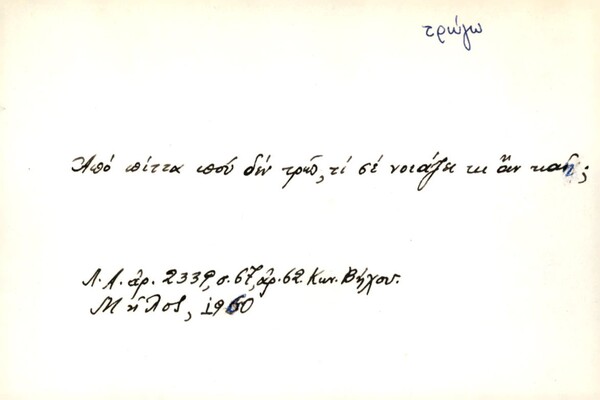 τρώγω
Ἀπό πίττα πού δέν τρῶς, τί σέ νοιάζει κι ἄν καῇ;
Λ.Α. ἀρ. 2339, σ. 67, ἀρ. 62. Κων. Βήχου.
Μῆλος, 1960